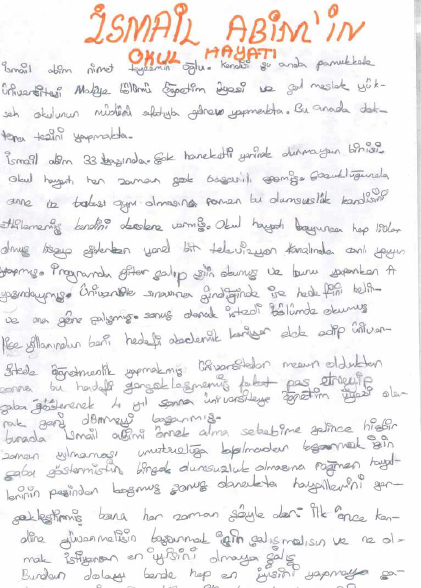 İSMAİL ABİM'İN
OKUL HAYATI
İsmail abim nimet teyzemin oğlu. Kendisi şu anda pamukkale
Üniversitesi Maliye bölümü öğretim üyesi ve Çal meslek yük-
sek okulunun müdürü olarak görev yapmakta. Bu arada dok-
tora tezini yapmakta.
İsmail abim 33 yaşında. Çok hareketli yerinde durmayan birisi.
Okul hayatı her zaman çok başarılı geçmiş. Çocukluğunda
anne ve babası ayrı olmasına rağmen bu olumsuzluk kendisini
etkilememiş kendini derslere vermiş. Okul hayatı boyunca hep lider
olmuş liseye giderken yerel bir televizyon kanalında canlı yayın
yapmış. Programda gitar çalıp şiir okumuş ve bunu yaparken 17
yaşındaymış. Üniversite sınavına girdiğinde ise hedefini belir-
ve ona göre çalışmış. sonuç olarak istediği bölümde okumuş
lise yıllarından beri hedefi akademik kariyer elde edip üniver-
sitede öğretmenlik yapmakmış Üniversiteden mezun olduktan
sonra bu hedefi gerçekleşmemiş fakat pes etmeyip
çaba göstererek 4 yıl sonra üniversiteye öğretim üyesi ola-
rak geri dönmeyi başarmış.
burada İsmail abimi örnek alma sebebime gelince hiçbir
zaman yılmaması umutsuzluğa kapılmadan başarmak için
çaba göstermiştir birçok olumsuzluk olmasına rağmen hayal-
lerinin peşinden koşmuş sonuç olarakta hayallerini ger-
çekleştirmiş bana her zaman şöyle der: İlk önce ken-
dine güvenmelisin başarmak için çalışmalısın ve ne ol-
mak istiyorsan en iyisini olmaya çalış
Bundan dolayı bende hep en iyisini yapmaya ça-